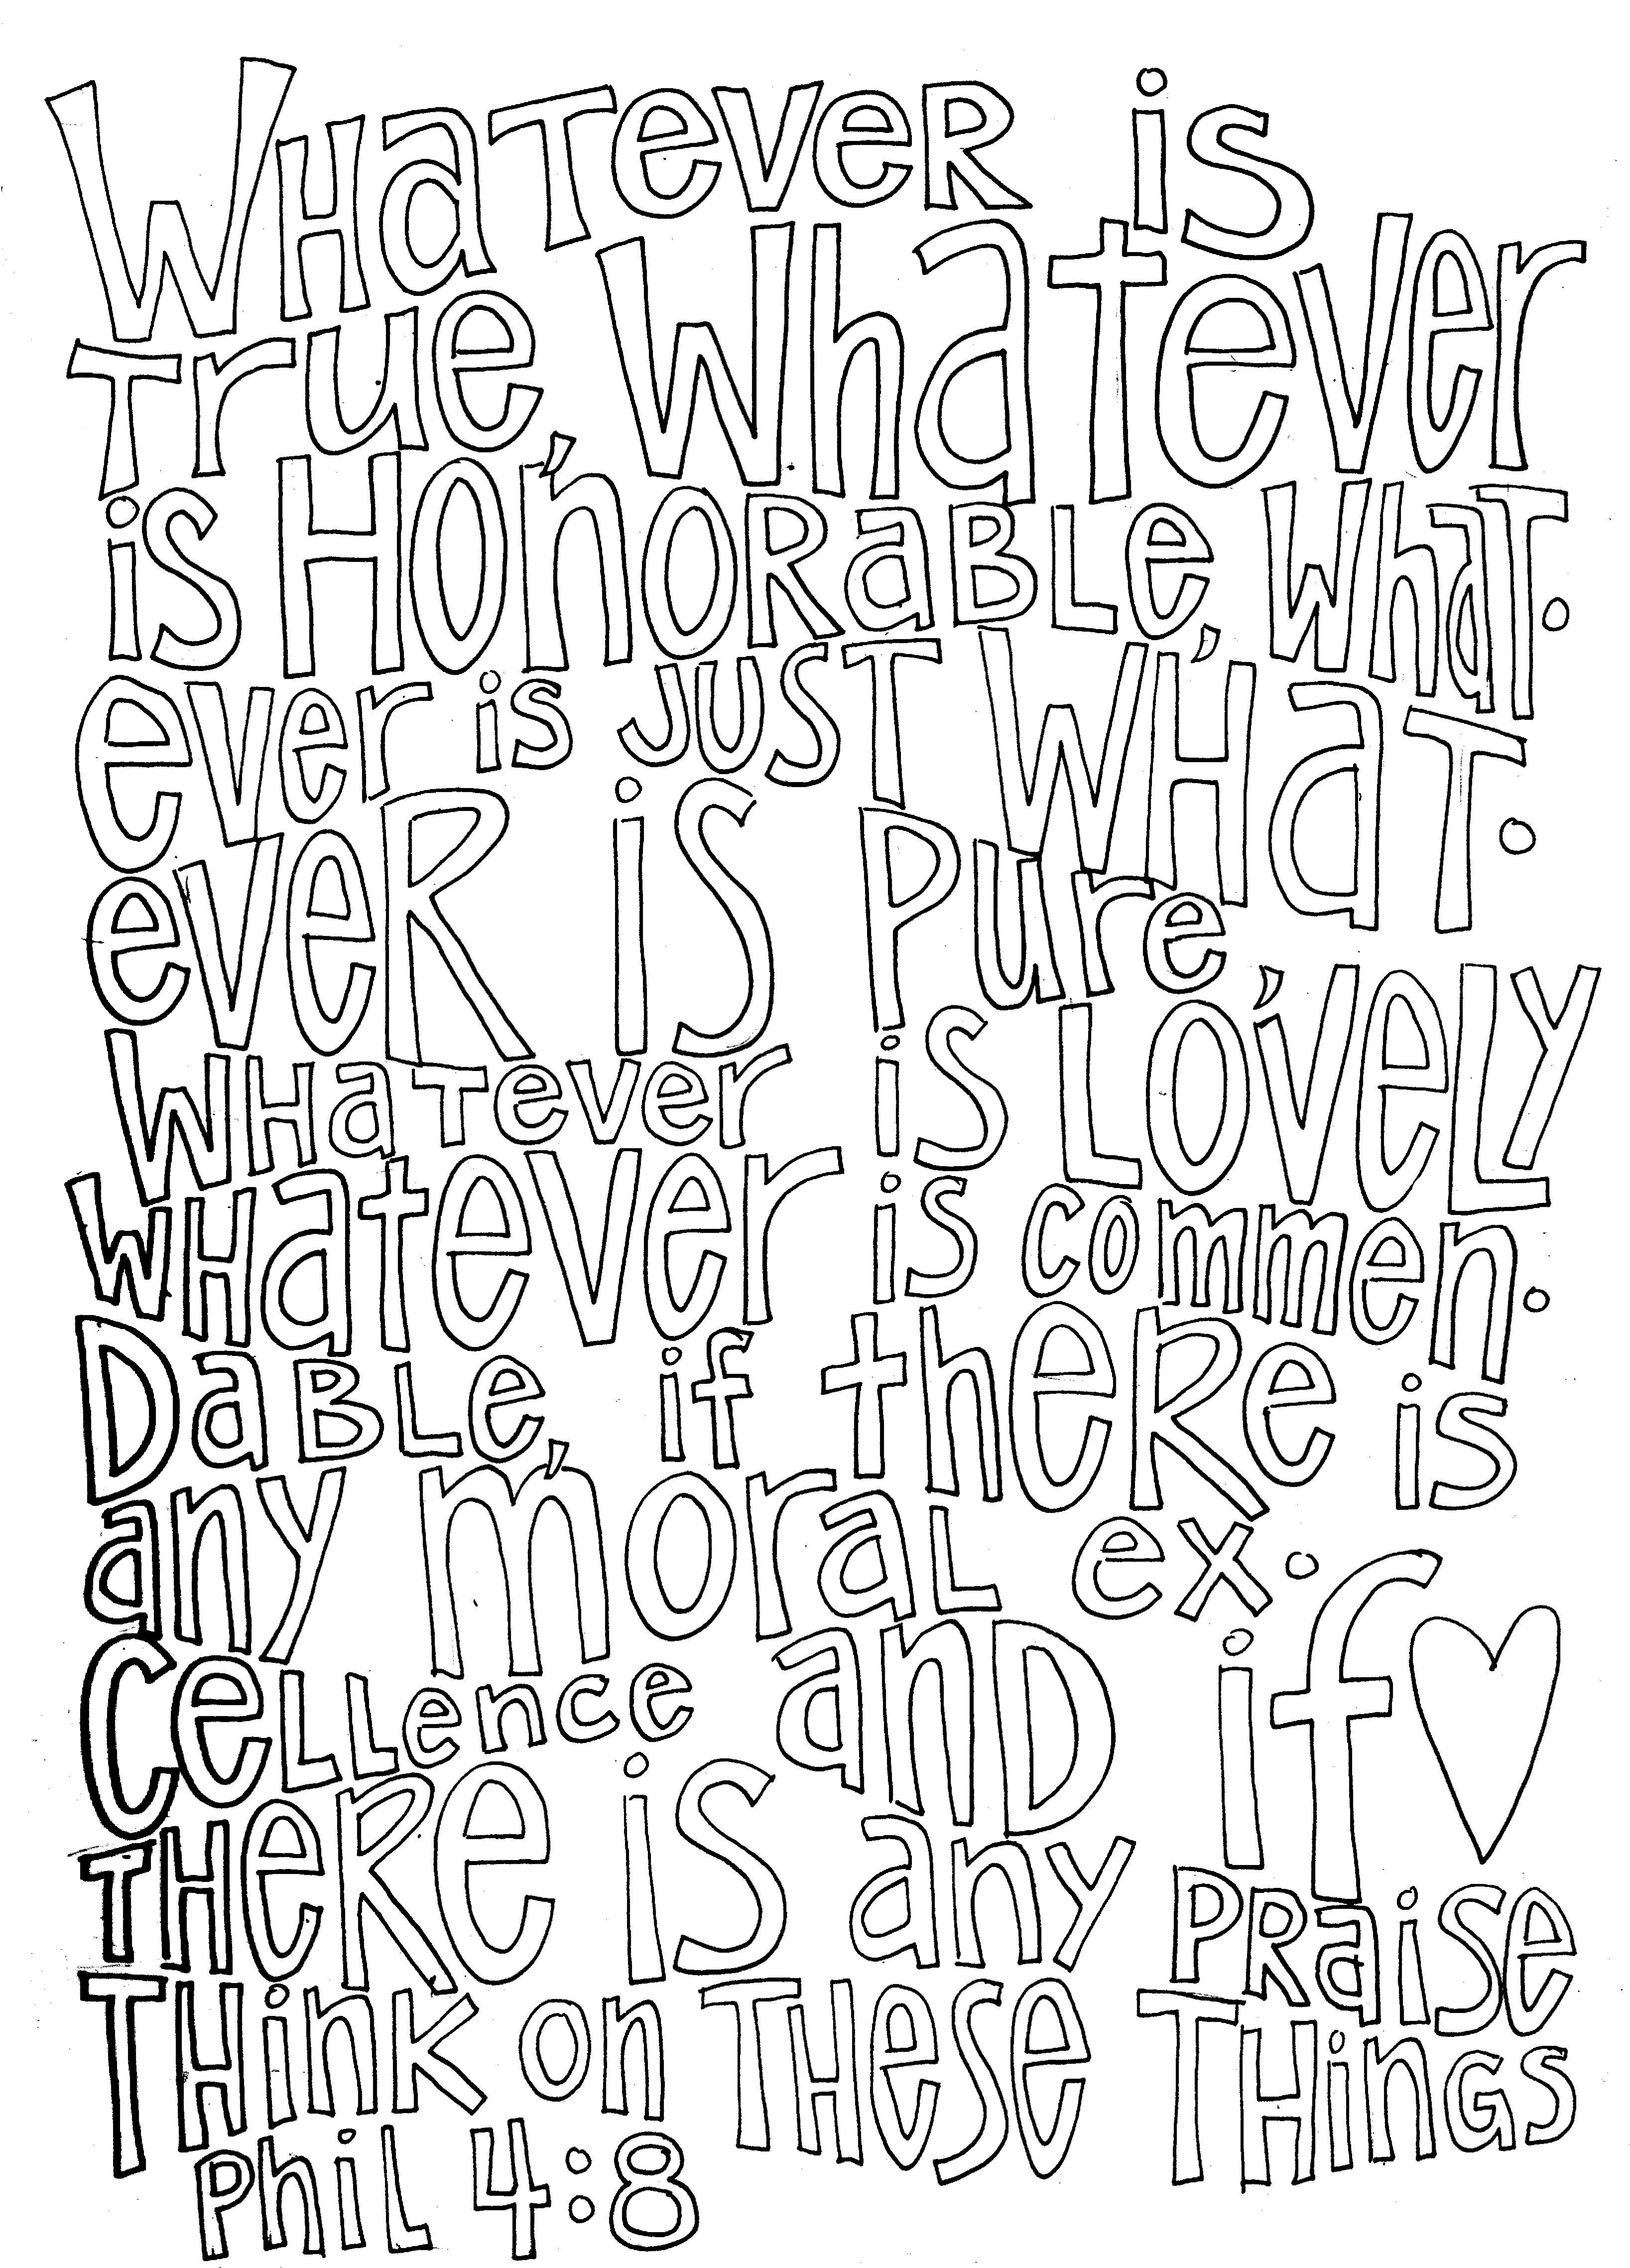 WHaTeveR is
True, Whatever
is HonoRaBLe, WhaT.
ever is JUST WHaT.
eveR is Pure,
WHaTever is LoveLY
WHatever is commen.
DaBLe, if theRe is
any moraL ex.
CeLLence anD if
THeRe is any PRaise
THinK on THeSe THinGS
PhiL 4:8